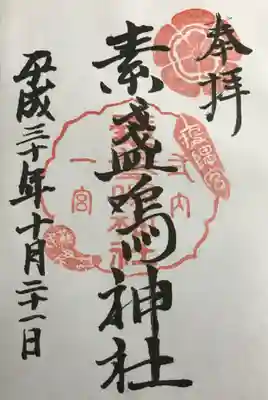 奉拝
素盞鳴神社
平成三十年十月二十一日
一宮